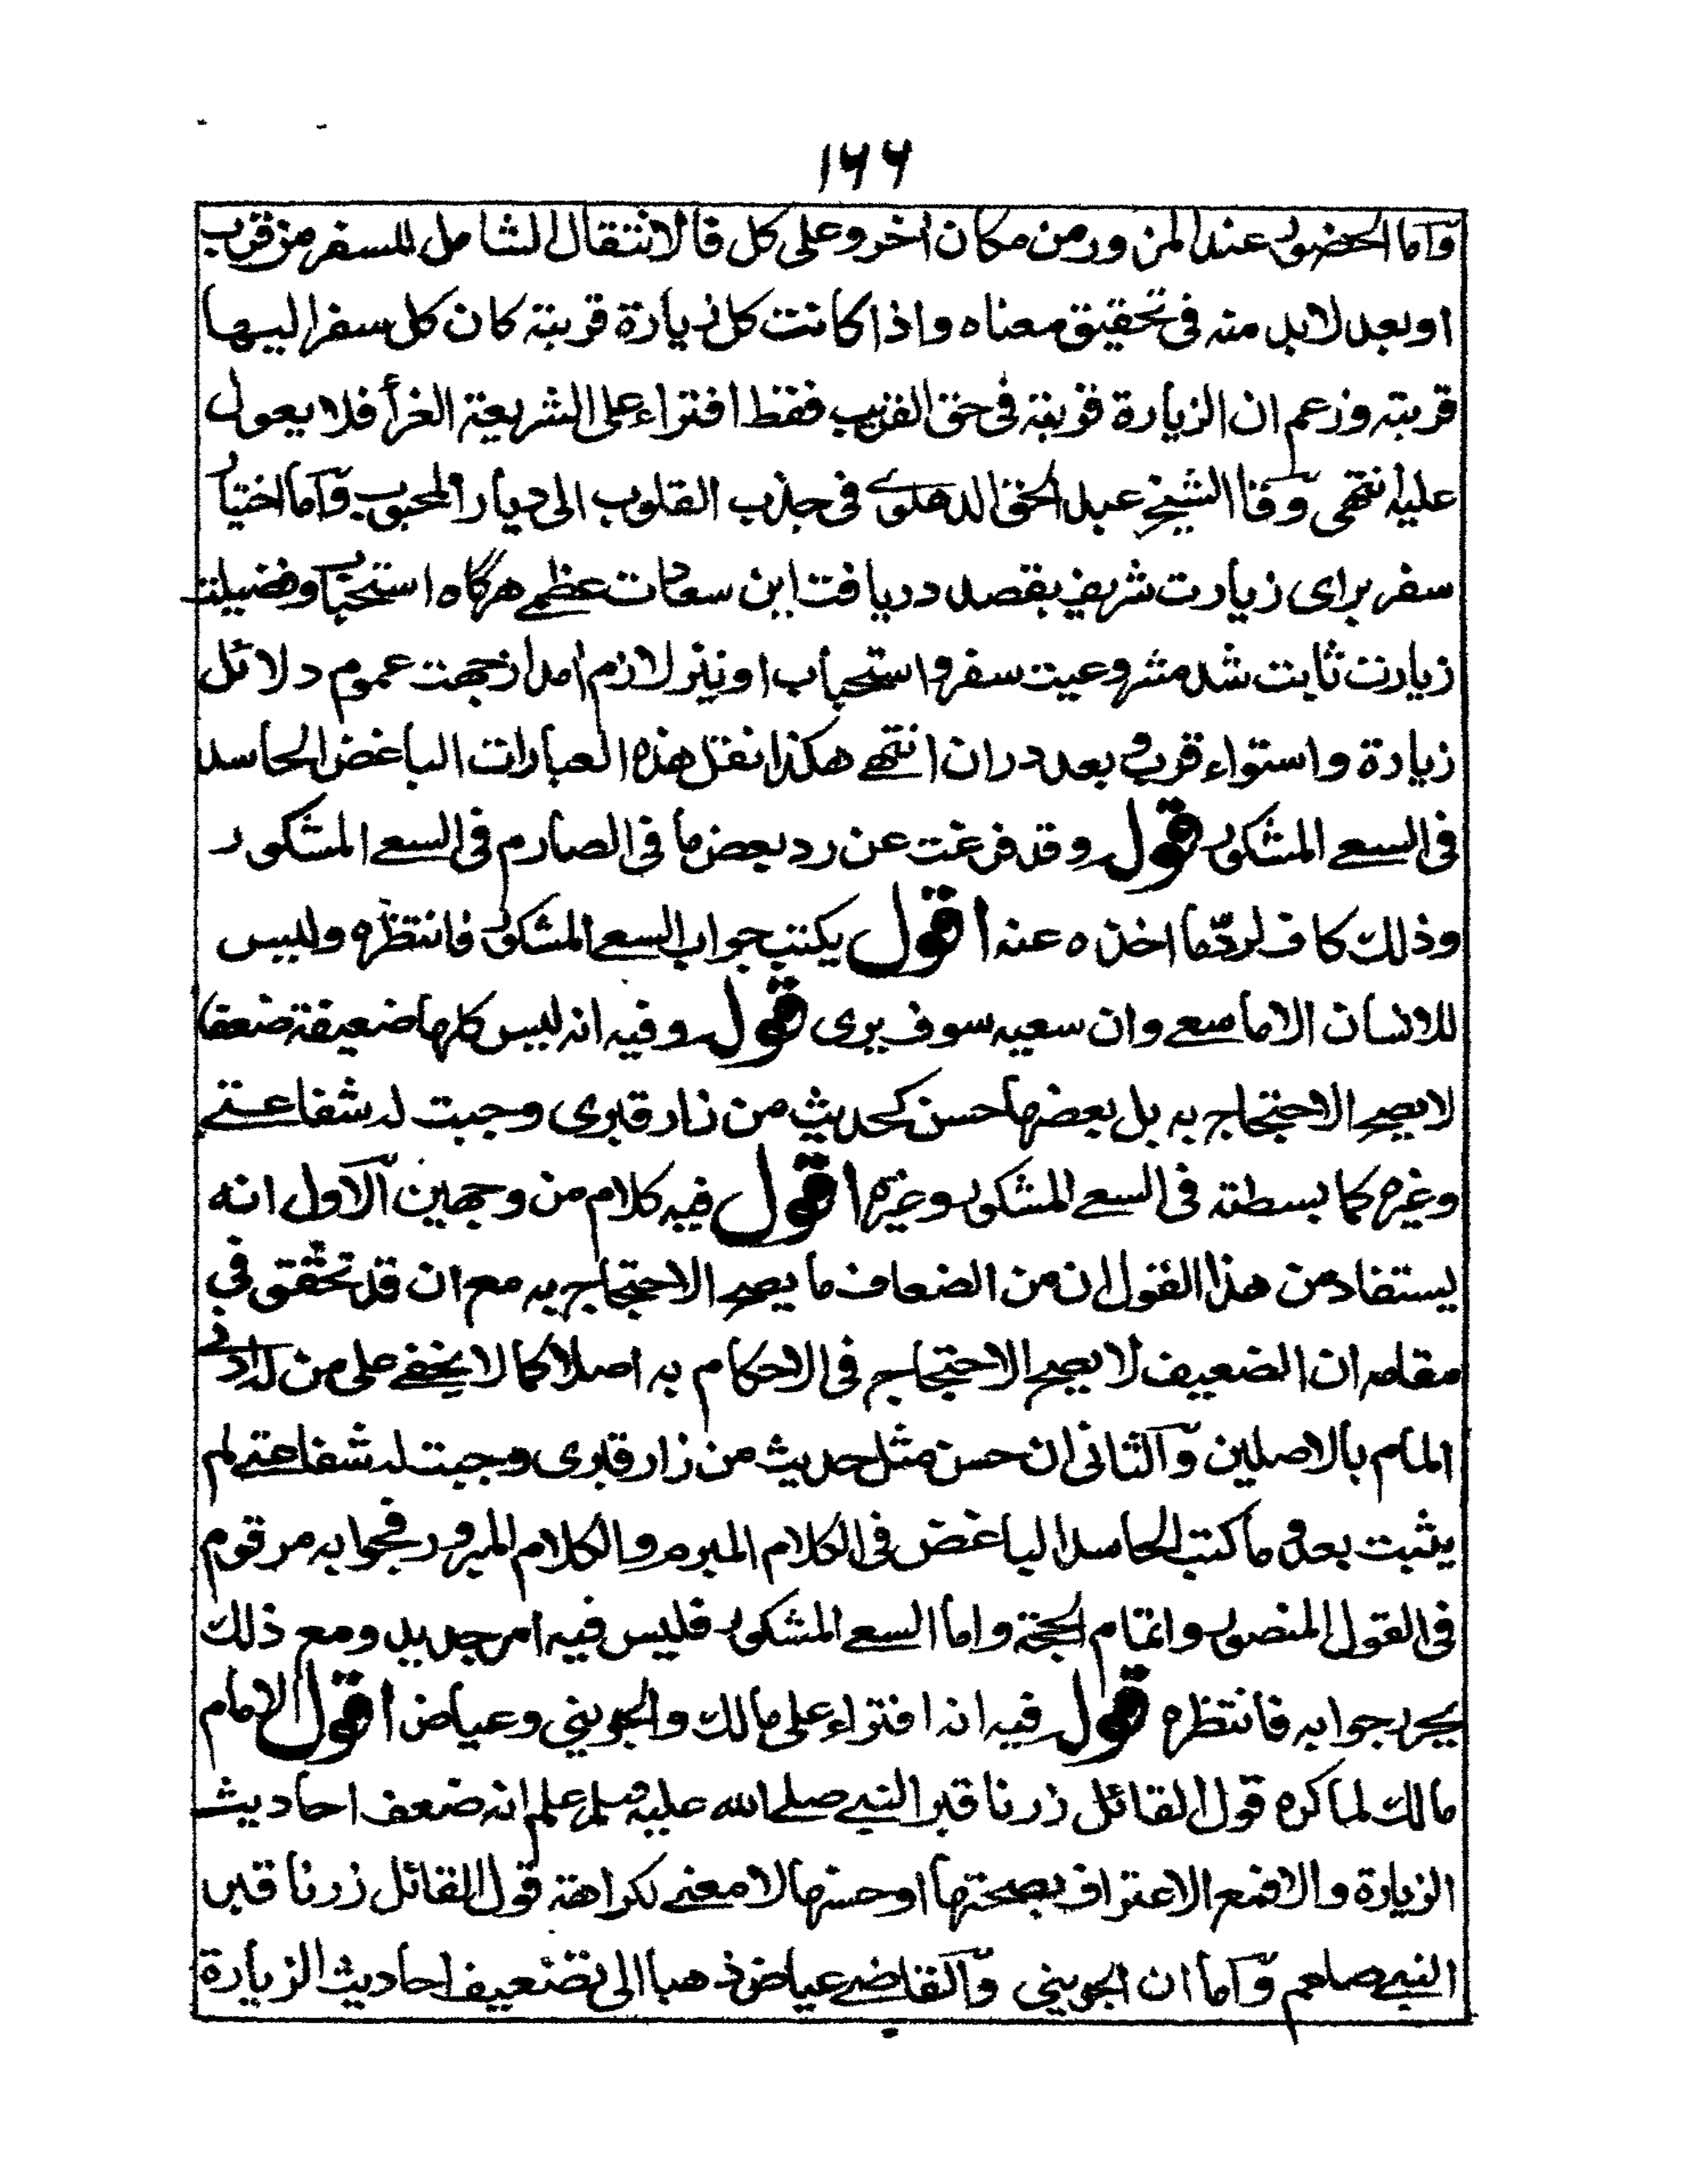 ١٦٦
وآما الحضور عند المزور من مكان اخر وعلى كل فالانتقال الشامل للسفر من قرب
او بعد لا بد منه فى تحقيق معناه واذا كانت كل زيارة قربة كان كل سفر اليها
قربته وزعم ان الزيارة قربة فى حق القريب فقط افتراء على الشريعة الغرأ فلا يعول
عليه انتهى وقال الشيخ عبد الحق الدهلوى فى جذب القلوب الى ديار المحبوب وآما اختيار
سفر براى زيارت شريف بقصد دريافت اين سعادت عظمے هرگاه استحباب وفضيلت
زيارت ثابت شد مشروعيت سفر و استحباب او نيز لازم امد از جهت عموم دلائل
زيارة واستواء قرب و بعد دران انتهے هكذا نقل هذه العبارات الباغض الحاسد
فى السعے المشكور قوله وقد فرغت عن رد بعض ما فى الصارم فى السعے المشكور
وذلك كاف لرد ما اخذه عنه اقول يكتب جواب السعے المشكور فانتظره وليس
للانسان الا ما سعے وان سعيه سوف يرى قوله وفيه انه ليس كلها ضعيفة ضعفا
لا يصح الاحتجاج به بل بعضها حسن كحديث من زار قبرى وجبت له شفاعتے
وغيره كما بسطته فى السعے المشكور وغيره اقول فيه كلام من وجهين آلاول انه
يستفاد من هذا القول ان من الضعاف ما يصح الاحتجاج به مع ان قد تحقق في
مقامه ان الضعيف لا يصح الاحتجاج فى الاحكام به اصلا كما لا يخفے على من له ادنى
المام بالاصلين وآلثانى ان حسن مثل حديث من زار قبرى وجبت له شفاعتے لم
يثبت بعد وما كتب الحاسد الباغض فى الكلام المبرم والكلام المبرور فجوابه مرقوم
فى القول المنصور واتمام الحجة واما السعے المشكور فليس فيه امر جديد ومع ذلك
يحرر جوابه فانتظره قوله فيه انه افتراء على مالك والجويني وعياض اقول الامام
مالك لما كره قول القائل زرنا قبر النبے صلے الله عليه وسلم علم انه ضعف احاديث
الزيارة والا فمع الاعتراف بصحتها او حسنها لا معنے لكراهة قول القائل زرنا قبر
النبے صلعم وآما ان الجويني وآلقاضے عياض ذهبا الى تضعيف احاديث الزيارة